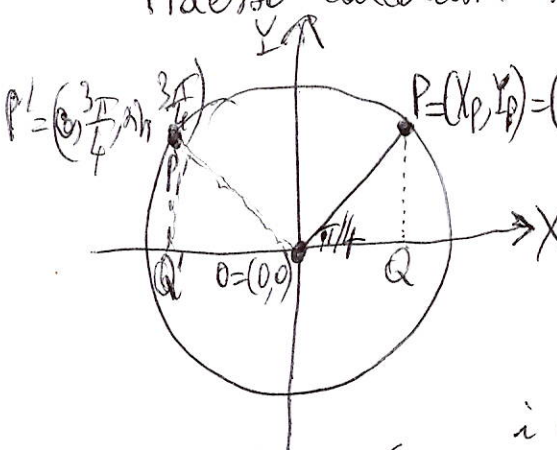 Y
P'=(cos 3π/4, sin 3π/4)
P=(X_P, Y_P)=(
P'
π/4
X
Q'
O=(0,0)
Q
i